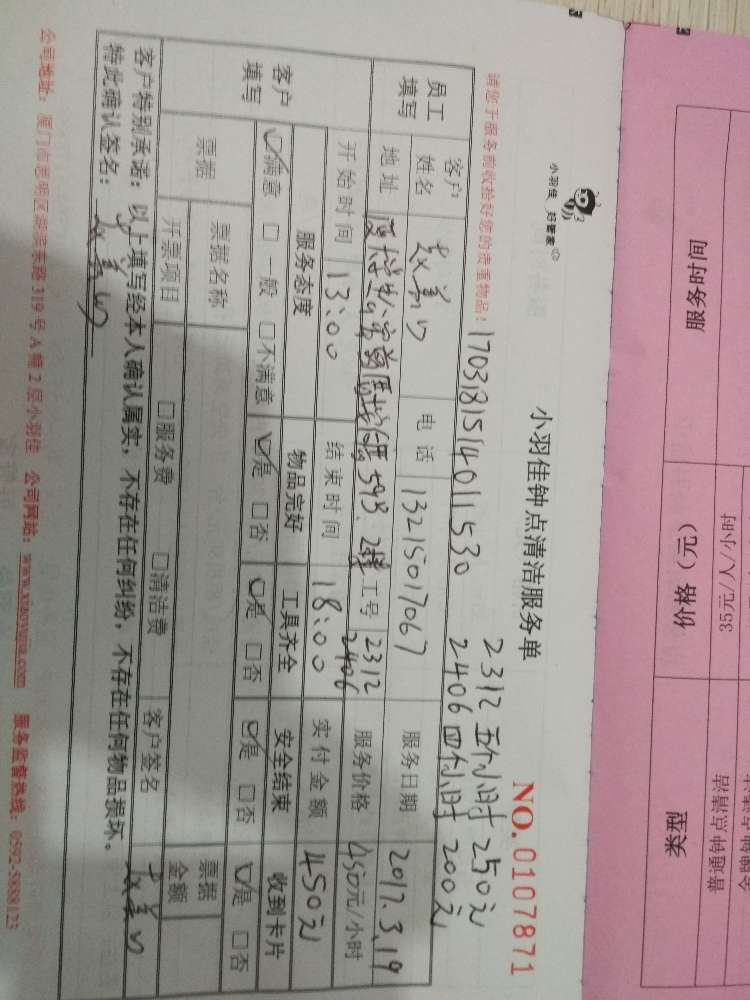 小羽佳 好管家
小羽佳钟点清洁服务单
NO.0107871
2312 五个小时 250元
2406 四个小时 200元
17031815140 11530
请您于服务前收拾好您的贵重物品:
员工填写
客户姓名
电话 13215017067
服务日期 2017.3.19
地址
59B. 2楼
工号 2312 2406
服务价格 450元/小时
开始时间 13:00
结束时间 18:00
实付金额 450元
客户填写
服务态度 物品完好 工具齐全 安全结束 收到卡片
☑满意 □一般 □不满意 ☑是 □否 ☑是 □否 ☑是 □否 ☑是 □否
票据
票据名称
票据金额
开票项目 □服务费 □清洁费
客户签名
客户特别承诺:以上填写经本人确认属实,不存在任何纠纷,不存在任何物品损坏。
特此确认签名:
公司地址:厦门市思明区 319号A幢2层小羽佳 公司网站:www.xiaoyujia.com 服务监督热线:0592-5888123
服务时间
价格(元)
类型
35元/人/小时
普通钟点清洁